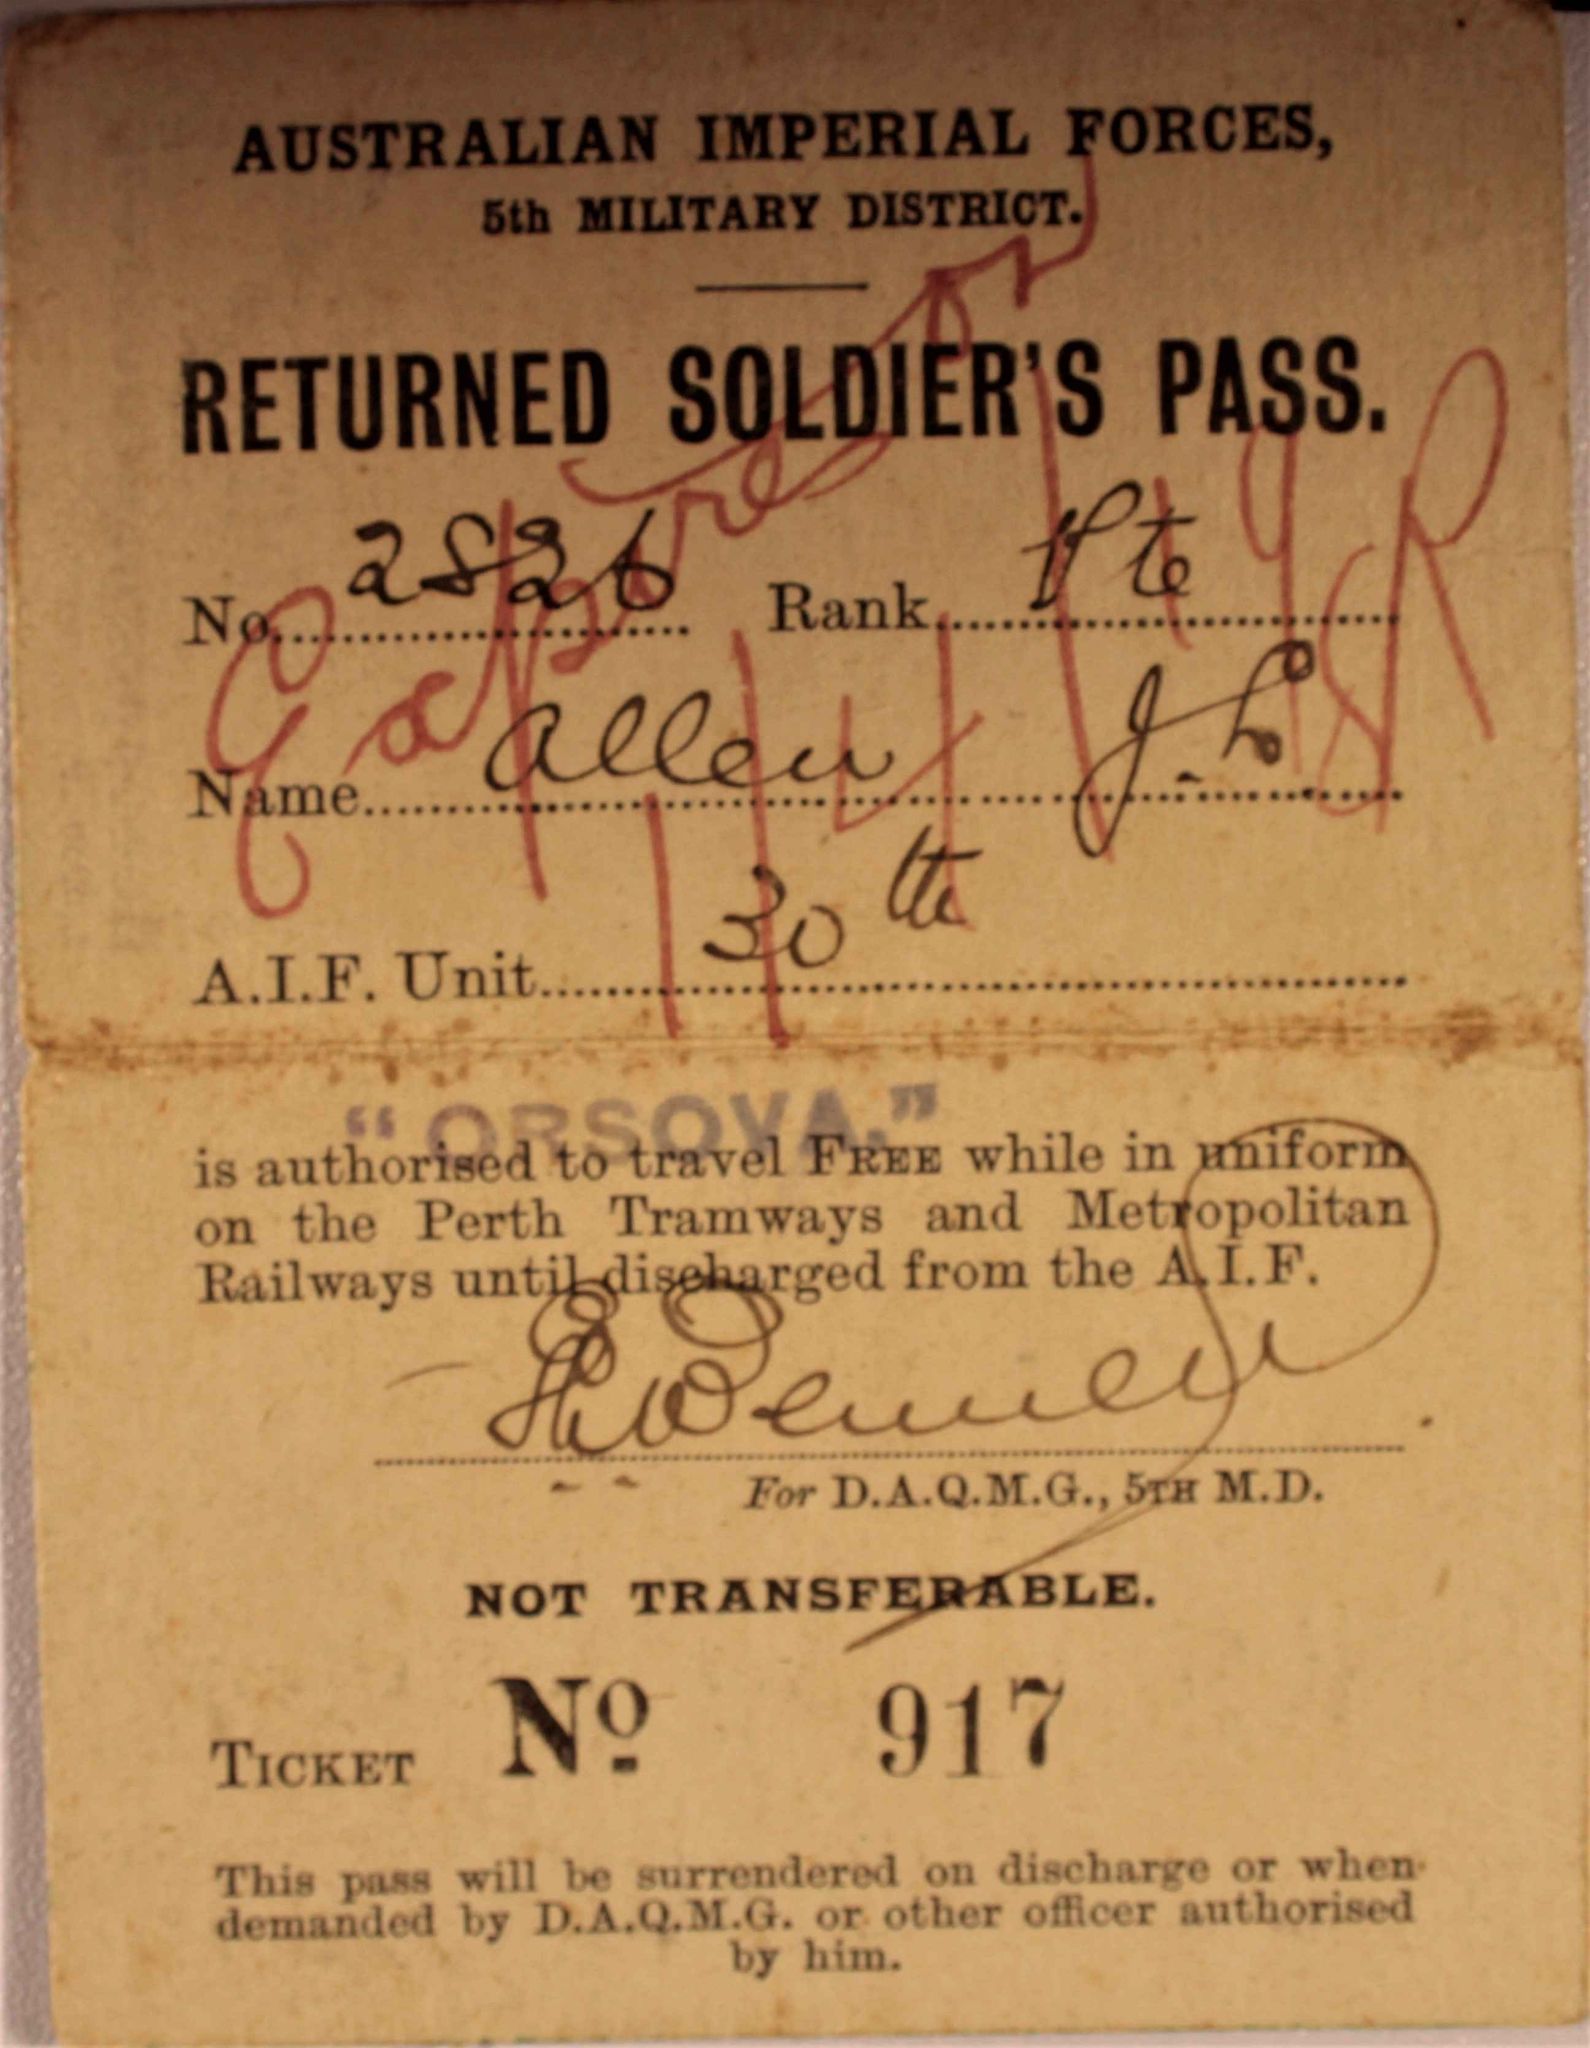 AUSTRALIAN IMPERIAL FORCES,
5th MILITARY DISTRICT.
RETURNED SOLDIER'S PASS.
No. 2826 Rank Pte
Name Allen J. L.
A.I.F. Unit 30th
Expires on
"ORSOVA."
is authorised to travel FREE while in uniform
on the Perth Tramways and Metropolitan
Railways until discharged from the A.I.F.
For D.A.Q.M.G., 5TH M.D.
NOT TRANSFERABLE.
TICKET No 917
This pass will be surrendered on discharge or when
demanded by D.A.Q.M.G. or other officer authorised
by him.